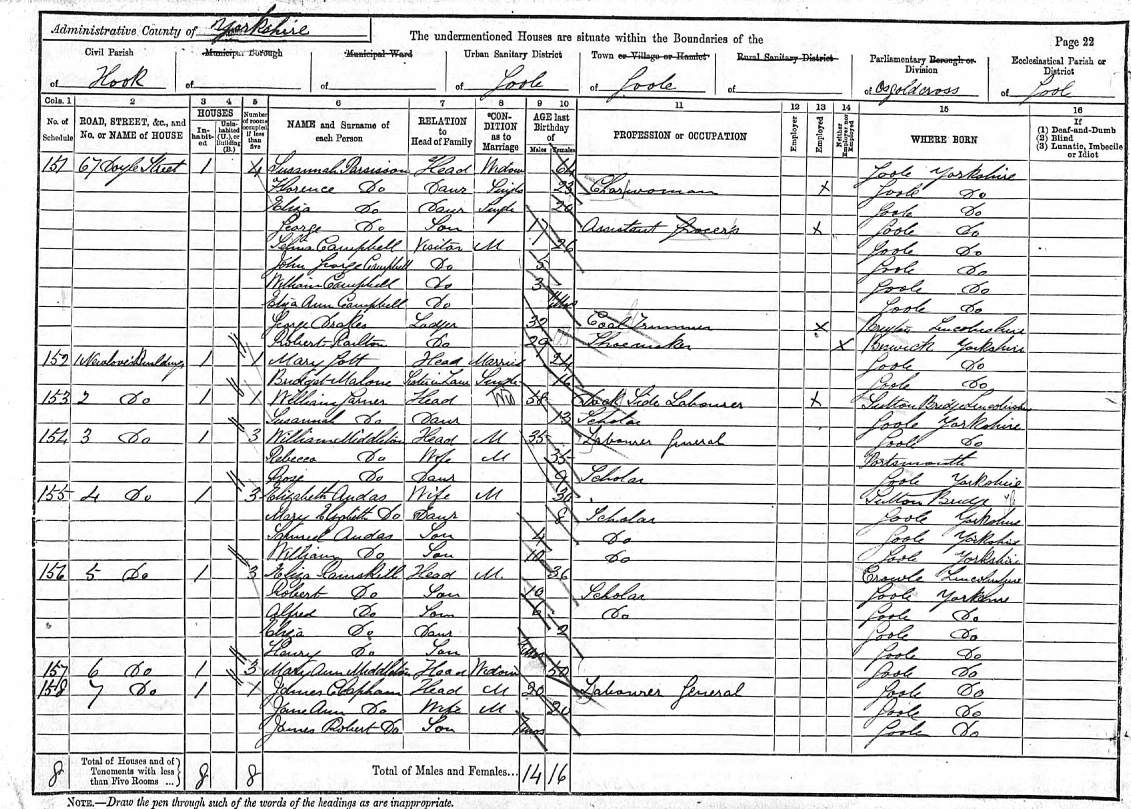 Administrative County of Yorkshire
The undermentioned Houses are situate within the Boundaries of the
Page 22
Civil Parish of Hook
Municipal Borough of
Municipal Ward of
Urban Sanitary District of Goole
Town or Village or Hamlet of Goole
Rural Sanitary District of
Parliamentary Borough or Division of Osgoldcross
Ecclesiastical Parish or District of Goole
Cols. 1 2 3 4 5 6 7 8 9 10 11 12 13 14 15 16
No. of Schedule
ROAD, STREET, &c., and No. or NAME of HOUSE
HOUSES
Inhabited
Uninhabited (U.), or Building (B.)
Number of rooms occupied if less than five
NAME and Surname of each Person
RELATION to Head of Family
CONDITION as to Marriage
AGE last Birthday of
Males Females
PROFESSION or OCCUPATION
Employer
Employed
Neither Employer nor Employed
WHERE BORN
If (1) Deaf-and-Dumb (2) Blind (3) Lunatic, Imbecile or Idiot
151 67 Doyle Street 1 4 Susannah Head Widow 64 Goole Yorkshire
Florence Do Daur Single 23 Charwoman X Goole Do
Eliza Do Daur Single 20 Goole Do
George Do Son 17 Assistant Grocers X Goole Do
Selina Campbell Visitor M 26 Goole Do
John George Campbell Do 5 Goole Do
William Campbell Do 3 Goole Do
Eliza Ann Campbell Do Goole Do
George Drakes Lodger 32 Coal Trimmer X Lincolnshire
Robert Railton Do 29 Shoemaker X Yorkshire
152 Buildings 1 1 Mary Pott Head Married 24 Goole Do
Bridget Malone Sister in Law Single 16 Goole Do
153 2 Do 1 1 William Head Wid 58 Dock Side Labourer X Sutton Bridge Lincolnshire
Susannah Do Daur 13 Scholar Goole Yorkshire
154 3 Do 1 3 William Middleton Head M 35 Labourer General Goole Do
Rebecca Do Wife M 35 Portsmouth
Rose Do Daur 9 Scholar Goole Yorkshire
155 4 Do 1 3 Elizabeth Andas Wife M 30 Sutton Bridge
Mary Elizabeth Do Daur 8 Scholar Goole Yorkshire
Samuel Andas Son 4 Do Goole Yorkshire
William Do Son 10 Do Goole Yorkshire
156 5 Do 1 3 Eliza Ramskill Head M 36 Crowle Lincolnshire
Robert Do Son 10 Scholar Goole Yorkshire
Alfred Do Son 6 Do Goole Do
Eliza Do Daur 2 Goole Do
Henry Do Son Goole Do
157 6 Do 1 3 Mary Ann Middleton Head Widow 50 Goole Do
158 7 Do 1 1 James Clapham Head M 20 Labourer General Goole Do
Jane Ann Do Wife M 20 Goole Do
James Robert Do Son Goole Do
8 Total of Houses and of Tenements with less than Five Rooms ... 8 8 Total of Males and Females... 14 16
NOTE.—Draw the pen through such of the words of the headings as are inappropriate.